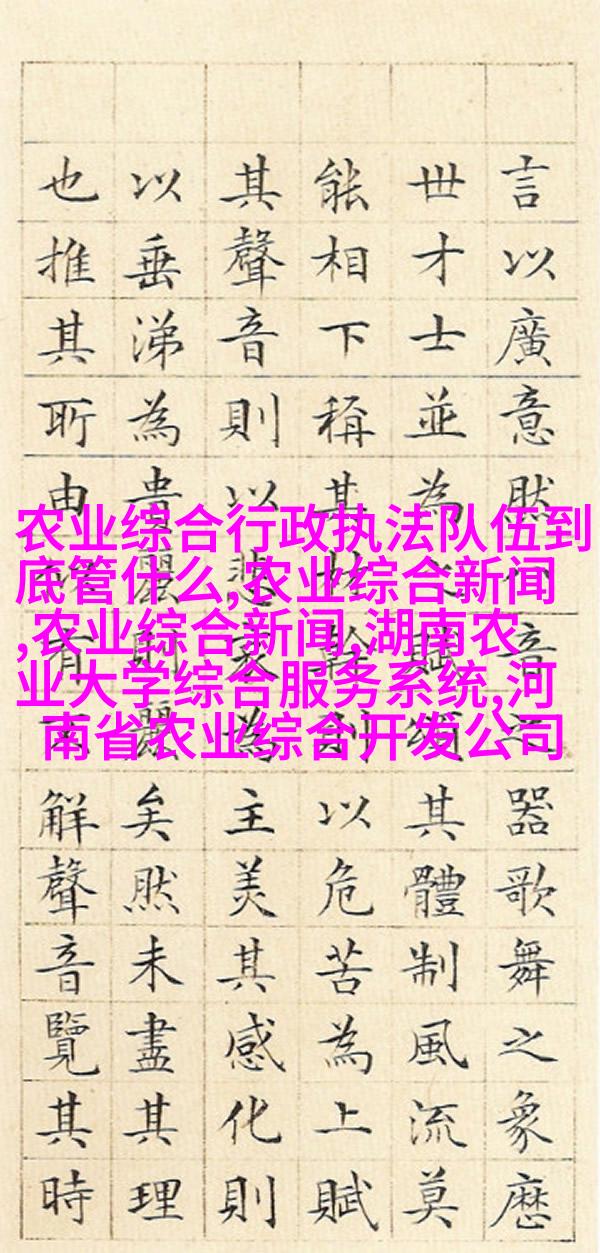 言以廣意然音之器歌舞之象歷
世才士並為之賦頌其體制風流莫
能相下稱其材幹則以危苦為上賦
其聲音則以悲哀為主美其感化則
以垂涕為貴麗則麗矣然未盡其理
也推其所由解聲音覽其時
农业综合行政执法队伍到
底管什么,农业综合新闻
,农业综合新闻,湖南农
业大学综合服务系统,河
南省农业综合开发公司